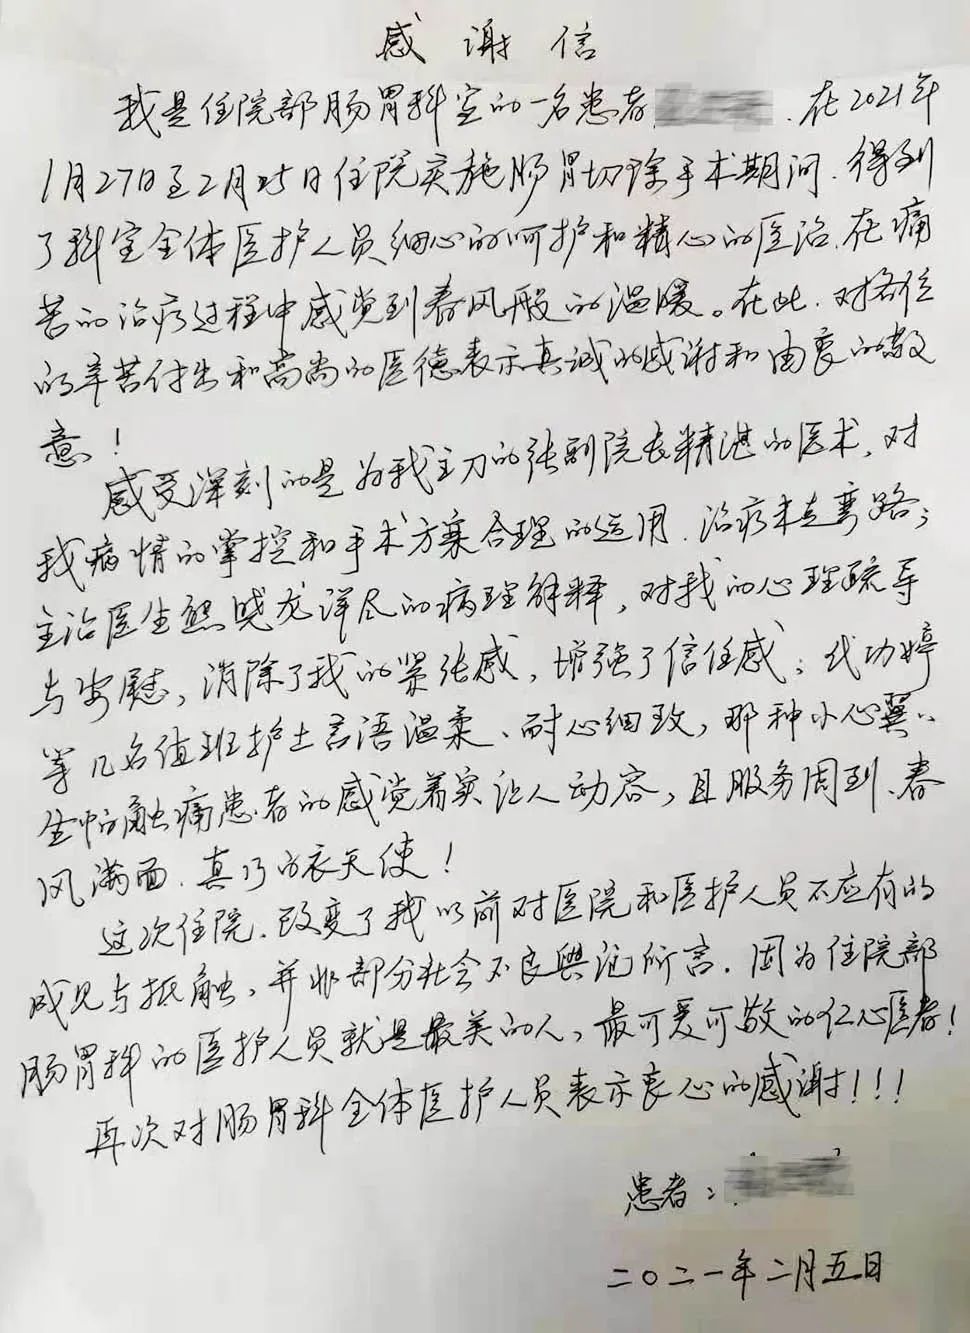 感谢信
我是住院部肠胃科室的一名患者 .在2021年
1月27日至2月25日住院实施肠胃切除手术期间.得到
了科室全体医护人员细心的呵护和精心的医治.在痛
苦的治疗过程中感觉到春风般的温暖。在此.对各位
的辛苦付出和高尚的医德表示真诚的感谢和由衷的敬
意!
感受深刻的是为我主刀的张副院长精湛的医术,对
我病情的掌控和手术方案合理的运用.治疗未走弯路;
主治医生熊晓龙详尽的病理解释,对我的心理疏导
与安慰,消除了我的紧张感,增强了信任感;代功婷
等几名值班护士言语温柔、耐心细致,那种小心翼、
生怕触痛患者的感觉着实让人动容,且服务周到、春
风满面.真乃白衣天使!
这次住院.改变了我以前对医院和医护人员不应有的
成见与抵触,并非部分社会不良舆论所言.因为住院部
肠胃科的医护人员就是最美的人,最可爱可敬的仁心医者!
再次对肠胃科全体医护人员表示衷心的感谢!!!
患者:
二〇二一年二月五日